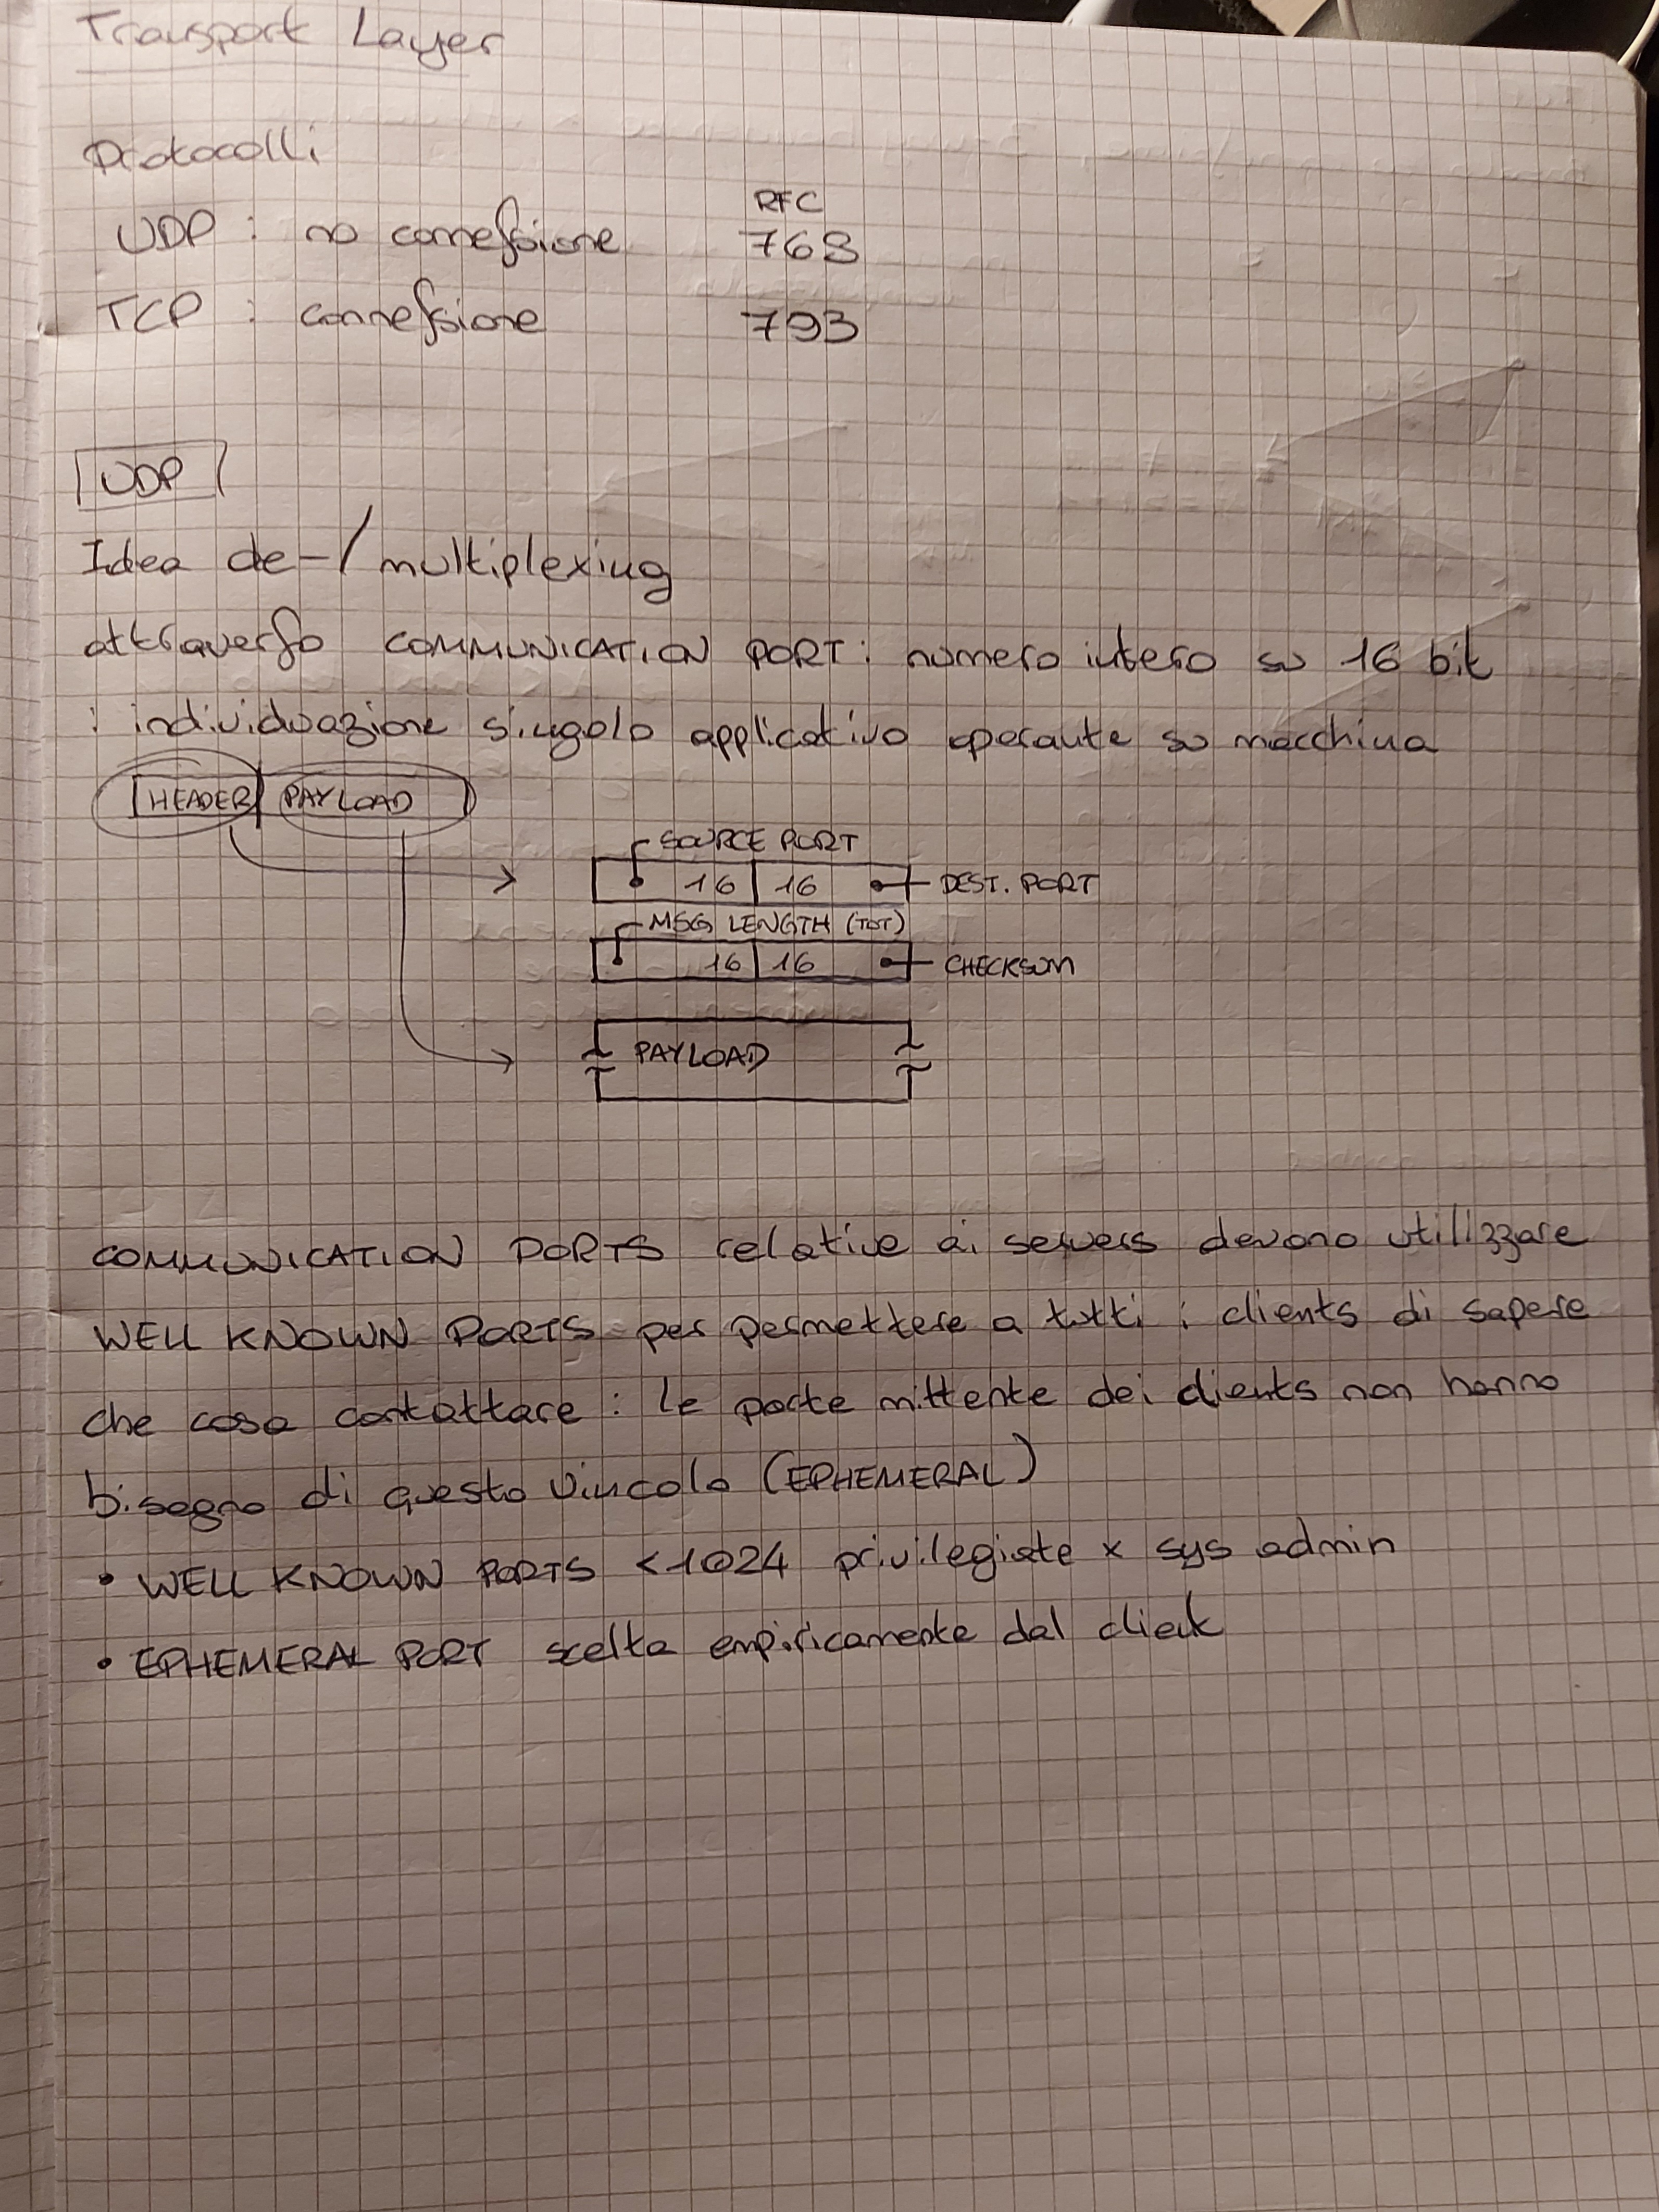 Transport Layer
Protocolli
RFC
UDP : no connessione 768
TCP : connessione 793
UDP
Idea de-/multiplexing
attraverso COMMUNICATION PORT: numero intero su 16 bit
: individuazione singolo applicativo operante su macchina
HEADER PAYLOAD
SOURCE PORT
16 16 DEST. PORT
MSG LENGTH (TOT)
16 16 CHECKSUM
PAYLOAD
COMMUNICATION PORTS relative ai servers devono utilizzare
WELL KNOWN PORTS per permettere a tutti i clients di sapere
che cosa contattare : le porte mittente dei clients non hanno
bisogno di questo vincolo (EPHEMERAL)
• WELL KNOWN PORTS <1024 privilegiate x sys admin
• EPHEMERAL PORT scelta empiricamente dal client